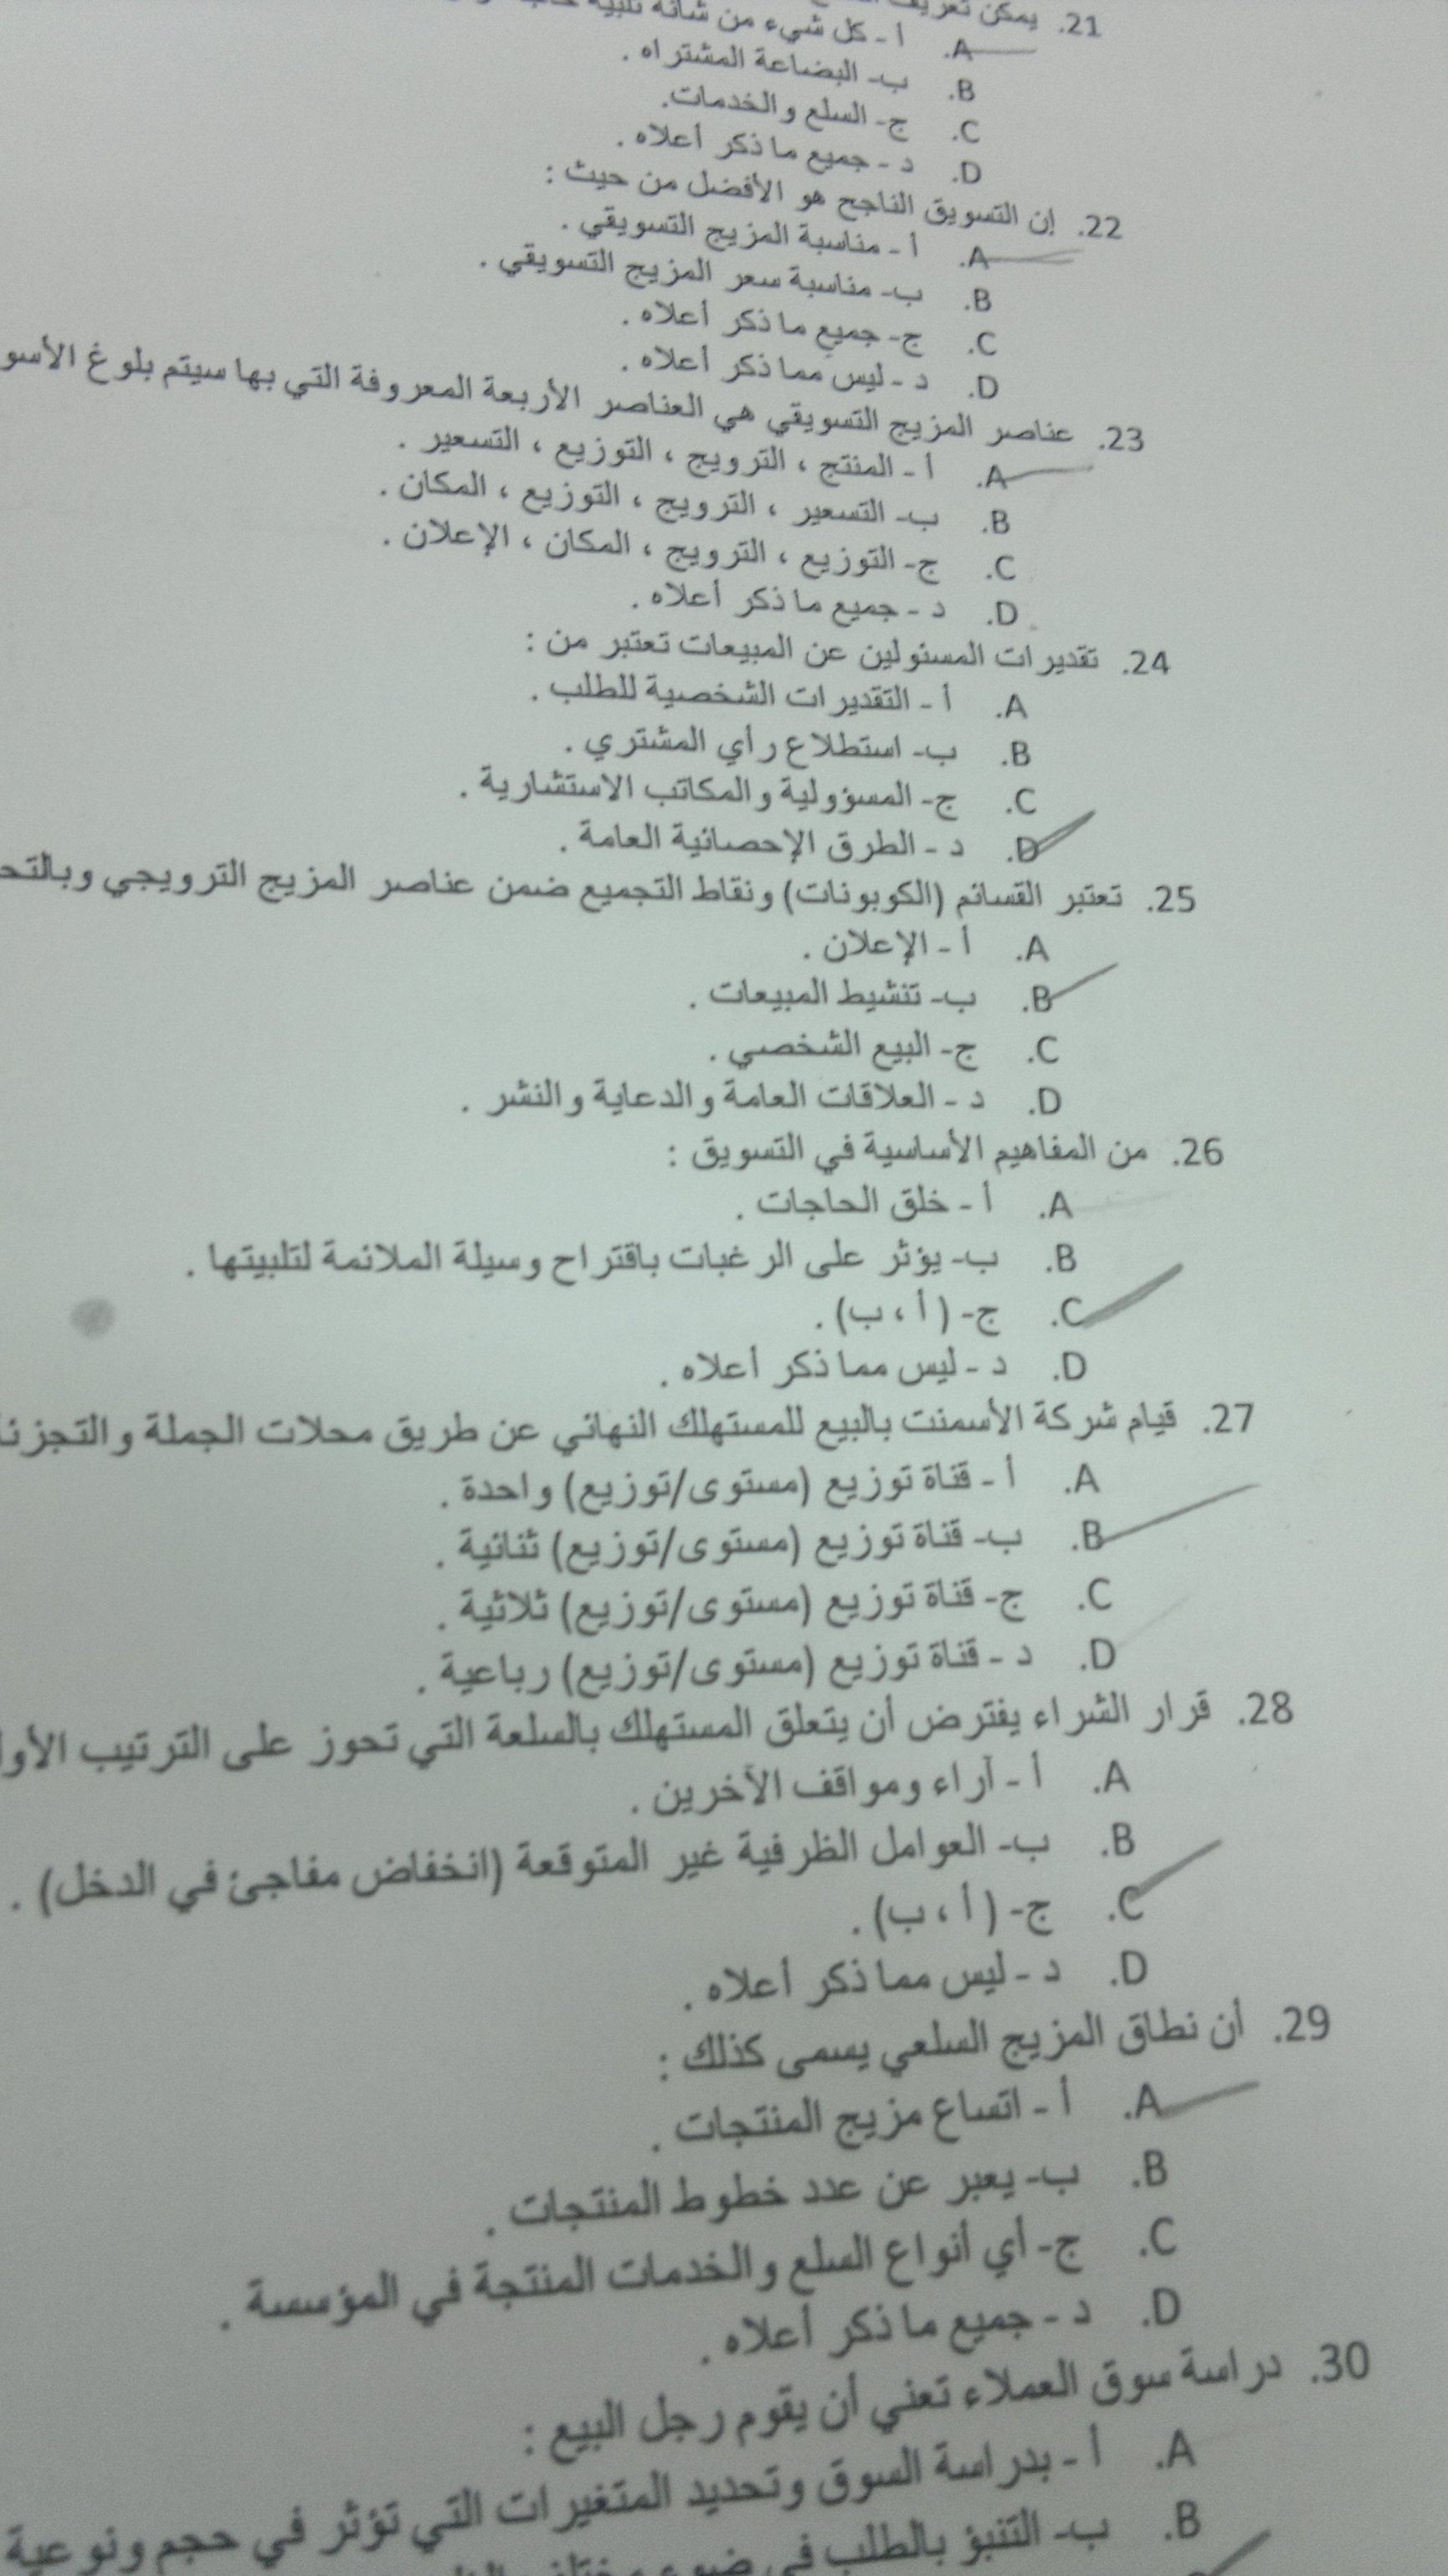 21. يمكن تعريف
A. أ - كل شيء من شأنه تلبية
B. ب- البضاعة المشتراه .
C. ج- السلع والخدمات.
D. د - جميع ما ذكر أعلاه .
22. إن التسويق الناجح هو الأفضل من حيث :
A. أ - مناسبة المزيج التسويقي .
B. ب- مناسبة سعر المزيج التسويقي .
C. ج- جميع ما ذكر أعلاه .
D. د - ليس مما ذكر أعلاه .
23. عناصر المزيج التسويقي هي العناصر الأربعة المعروفة التي بها سيتم بلوغ الأسو
A. أ - المنتج ، الترويج ، التوزيع ، التسعير .
B. ب- التسعير ، الترويج ، التوزيع ، المكان .
C. ج- التوزيع ، الترويج ، المكان ، الإعلان .
D. د - جميع ما ذكر أعلاه .
24. تقديرات المسئولين عن المبيعات تعتبر من :
A. أ - التقديرات الشخصية للطلب .
B. ب- استطلاع رأي المشتري .
C. ج- المسؤولية والمكاتب الاستشارية .
D. د - الطرق الإحصائية العامة .
25. تعتبر القسائم (الكوبونات) ونقاط التجميع ضمن عناصر المزيج الترويجي وبالتح
A. أ - الإعلان .
B. ب- تنشيط المبيعات .
C. ج- البيع الشخصي .
D. د - العلاقات العامة والدعاية والنشر .
26. من المفاهيم الأساسية في التسويق :
A. أ - خلق الحاجات .
B. ب- يؤثر على الرغبات باقتراح وسيلة الملائمة لتلبيتها .
C. ج- (أ ، ب) .
D. د - ليس مما ذكر أعلاه .
27. قيام شركة الأسمنت بالبيع للمستهلك النهائي عن طريق محلات الجملة والتجزئ
A. أ - قناة توزيع (مستوى/توزيع) واحدة .
B. ب- قناة توزيع (مستوى/توزيع) ثنائية .
C. ج- قناة توزيع (مستوى/توزيع) ثلاثية .
D. د - قناة توزيع (مستوى/توزيع) رباعية .
28. قرار الشراء يفترض أن يتعلق المستهلك بالسلعة التي تحوز على الترتيب الأول
A. أ - آراء ومواقف الآخرين .
B. ب- العوامل الظرفية غير المتوقعة (انخفاض مفاجئ في الدخل) .
C. ج- (أ ، ب) .
D. د - ليس مما ذكر أعلاه .
29. أن نطاق المزيج السلعي يسمى كذلك :
A. أ - اتساع مزيج المنتجات .
B. ب- يعبر عن عدد خطوط المنتجات .
C. ج- أي أنواع السلع والخدمات المنتجة في المؤسسة .
D. د - جميع ما ذكر أعلاه .
30. دراسة سوق العملاء تعني أن يقوم رجل البيع :
A. أ - بدراسة السوق وتحديد المتغيرات التي تؤثر في حجم ونوعية
B. ب- التنبؤ بالطلب في ضوء